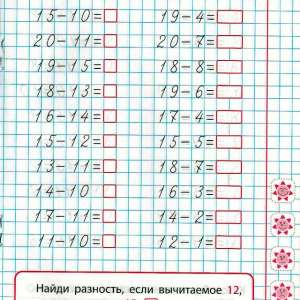 15-10=□ 19-4=□
20-11=□ 20-7=□
19-15=□ 18-8=□
18-13=□ 19-6=□
16-14=□ 17-4=□
15-12=□ 15-5=□
13-11=□ 18-7=□
14-10 □ 16-3=□
17-11=□ 14-2=□
11-10=□ 12-1=□
Найди разность, если вычитаемое 12,